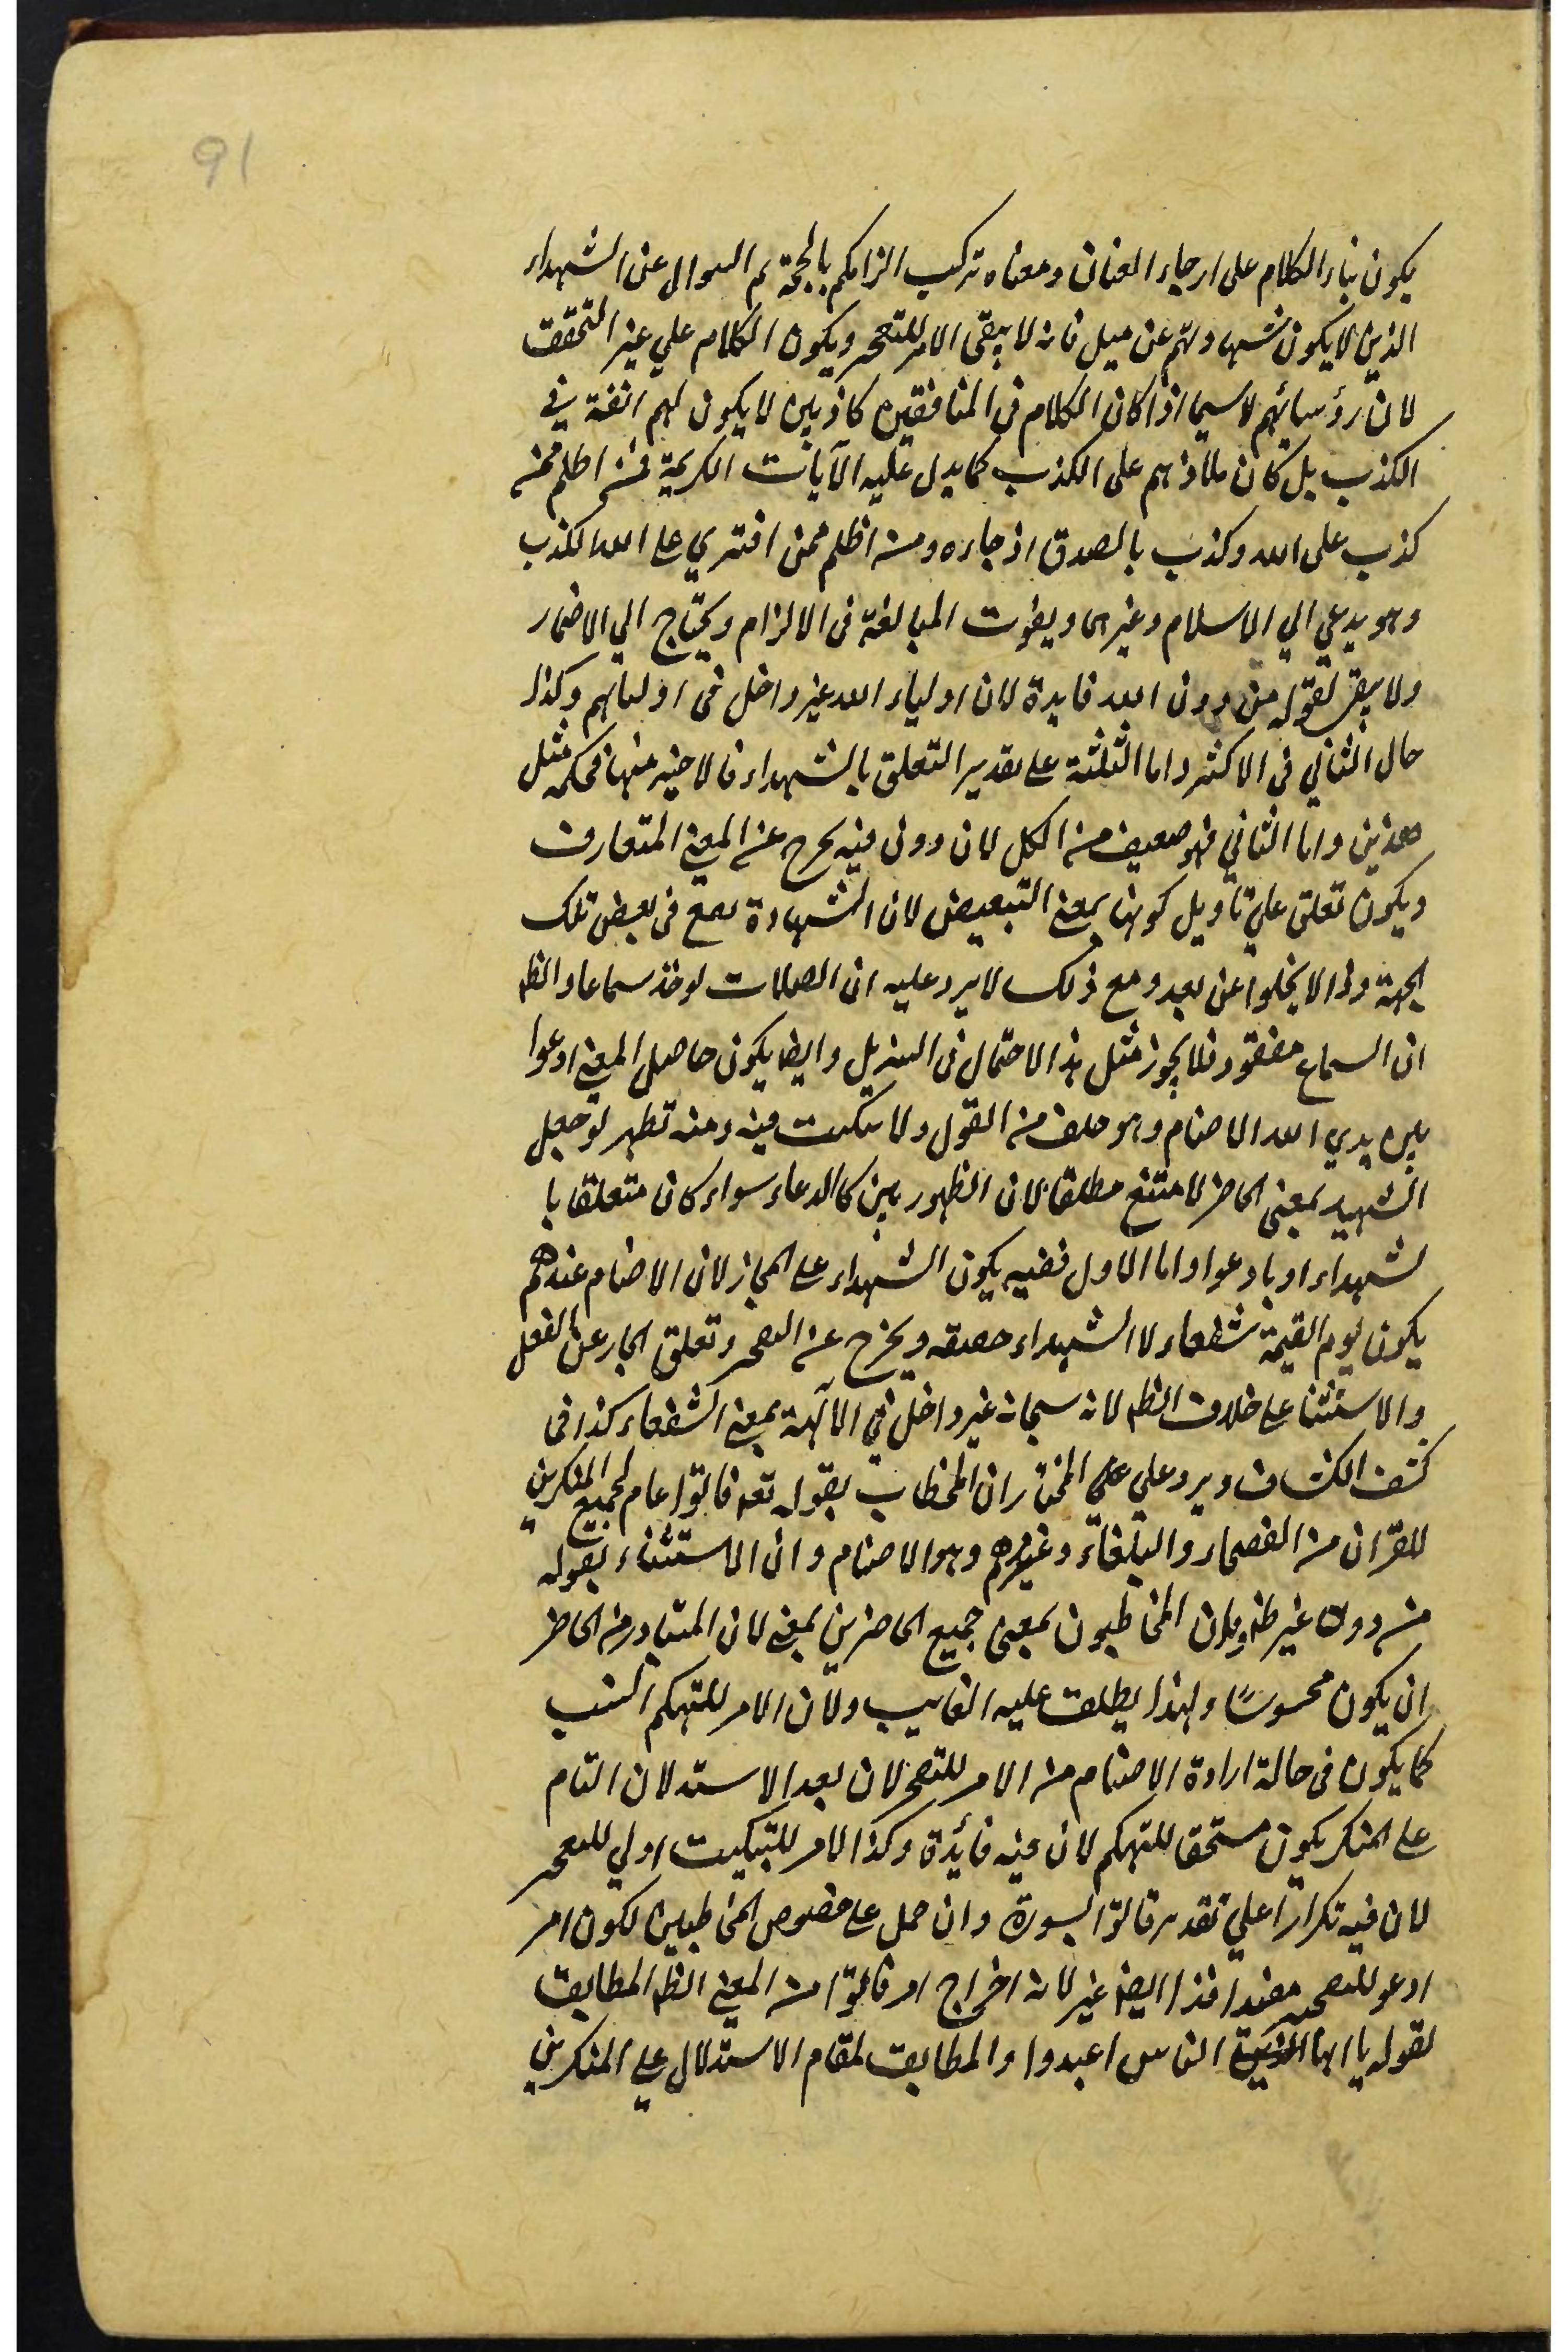 91
يكون بناء الكلام على ارجاء العنان ومعناه تركب الزامكم بالحجة ثم السوال عن الشهداء
الذين لا يكون شهادتهم عن ميل فانه لا يبقى الامر للتعجيز ويكون الكلام علي غير التحقق
لان رؤسائهم لاسيما اذا كان الكلام فى المنافقين كاذبين لا يكون لهم انفة في
الكذب بل كان ملاذهم على الكذب كما يدل عليه الآيات الكريمة فمن اظلم ممن
كذب على الله وكذب بالصدق اذ جاءه ومن اظلم ممن افتري على الله الكذب
وهو يدعي الي الاسلام وغيرهما ويفوت المبالغة فى الالزام ويحتاج الي الاضمار
ولا يبقى لقوله من دون الله فايدة لان اولياء الله غير داخل فى اوليائهم وكذا
حال الثاني فى الاكثر واما الثلثة على تقدير التعلق بالشهداء فالاخير منها فحكمه مثل
هذين واما الثاني فهو ضعيف من الكل لان دون فيه يخرج عن المعنى المتعارف
ويكون تعلق علي تاويل كونها بمعنى التبعيض لان الشهادة تقع فى بعض تلك
الجهة وذا لا يخلوا عن بعد ومع ذلك لا يرد عليه ان الصلات توخذ سماعا والظ
ان السماع مفقود فلا يجوز مثل هذا الاحتمال فى التنزيل وايضا يكون حاصل المعنى ادعوا
بين يدي الله الاصنام وهو خلف من القول ولا تبكيت فيه ومنه تظهر لو جعل
الشهيد بمعنى الحاضر لامتنع مطلقا لان الظهور بين كالدعاء سواء كان متعلقا با
لشهداء او بادعوا واما الاول ففيه يكون الشهداء على المجاز لان الاصنام عندهم
يكون يوم القيمة شفعاء لا الشهداء حقيقة ويخرج عن التعجيز وتعلق الجار عن الفعل
والاستثنا على خلاف الظ لانه سبحانه غير داخل في الآلهة بمعنى الشفعاء كذا فى
كشف الكشاف ويرد علي علي المختار ان الخطاب بقوله تعه فاتوا عام لجميع المنكرين
للقرآن من الفصحاء والبلغاء وغيرهم وهو الاصنام وان الاستثناء بقوله
من دون غير ظ ولان المخاطبون بمعنى جميع الحاضرين بمعنى لان المتبادر من الحاضر
ان يكون محسوسًا ولهذا يطلق عليه الغايب ولان الامر للتهكم انسب
كما يكون فى حالة ارادة الاصنام من الامر للتعجيز لان بعد الاستدلان التام
على المنكر يكون مستحقا للتهكم لان فيه فائدة وكذا الامر للتبكيت اولي للتعجيز
لان فيه تكرارا علي تقدير فاتوا بسورة وان حمل على خصوص المخاطبين لكون امر
ادعو للتعجيز مفيدا فذا ايضا غير لانه اخراج امر فاتوا من المعنى الظ المطابق
لقوله يا ايها الناس اعبدوا والمطابق لمقام الاستدلال على المنكرين